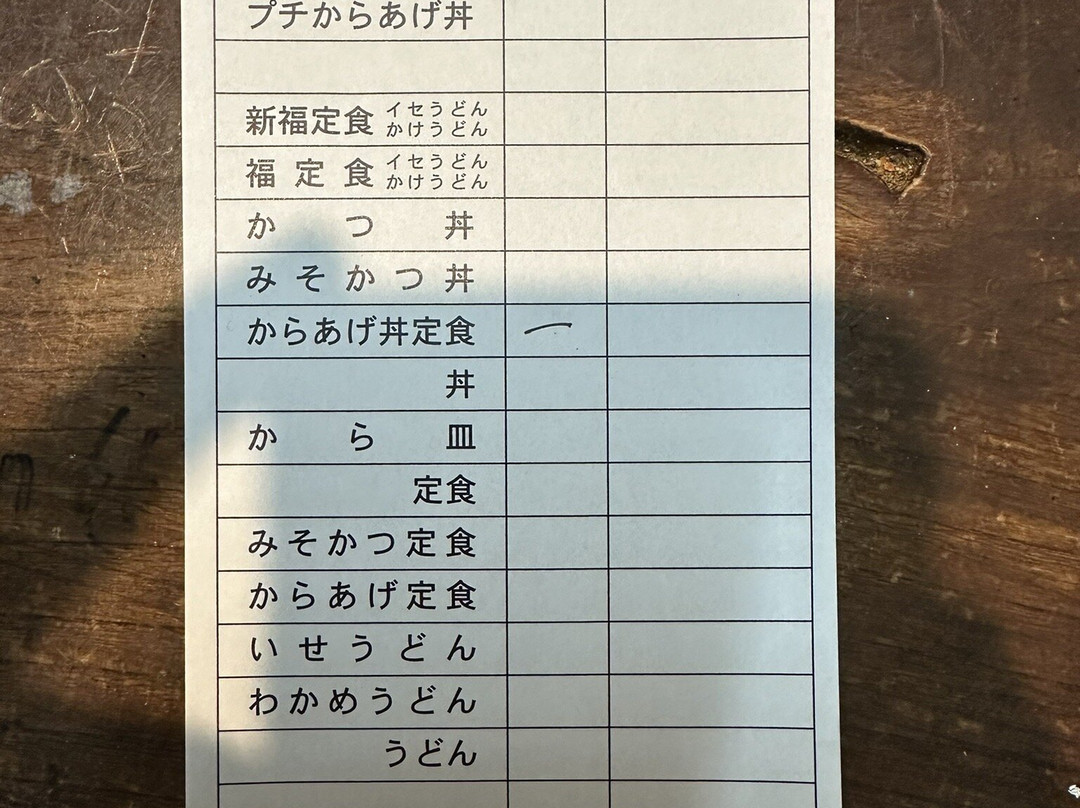 プチからあげ丼
新福定食 イセうどん
かけうどん
福定食 イセうどん
かけうどん
かつ丼
みそかつ丼
からあげ丼定食 一
丼
から皿
定食
みそかつ定食
からあげ定食
いせうどん
わかめうどん
うどん